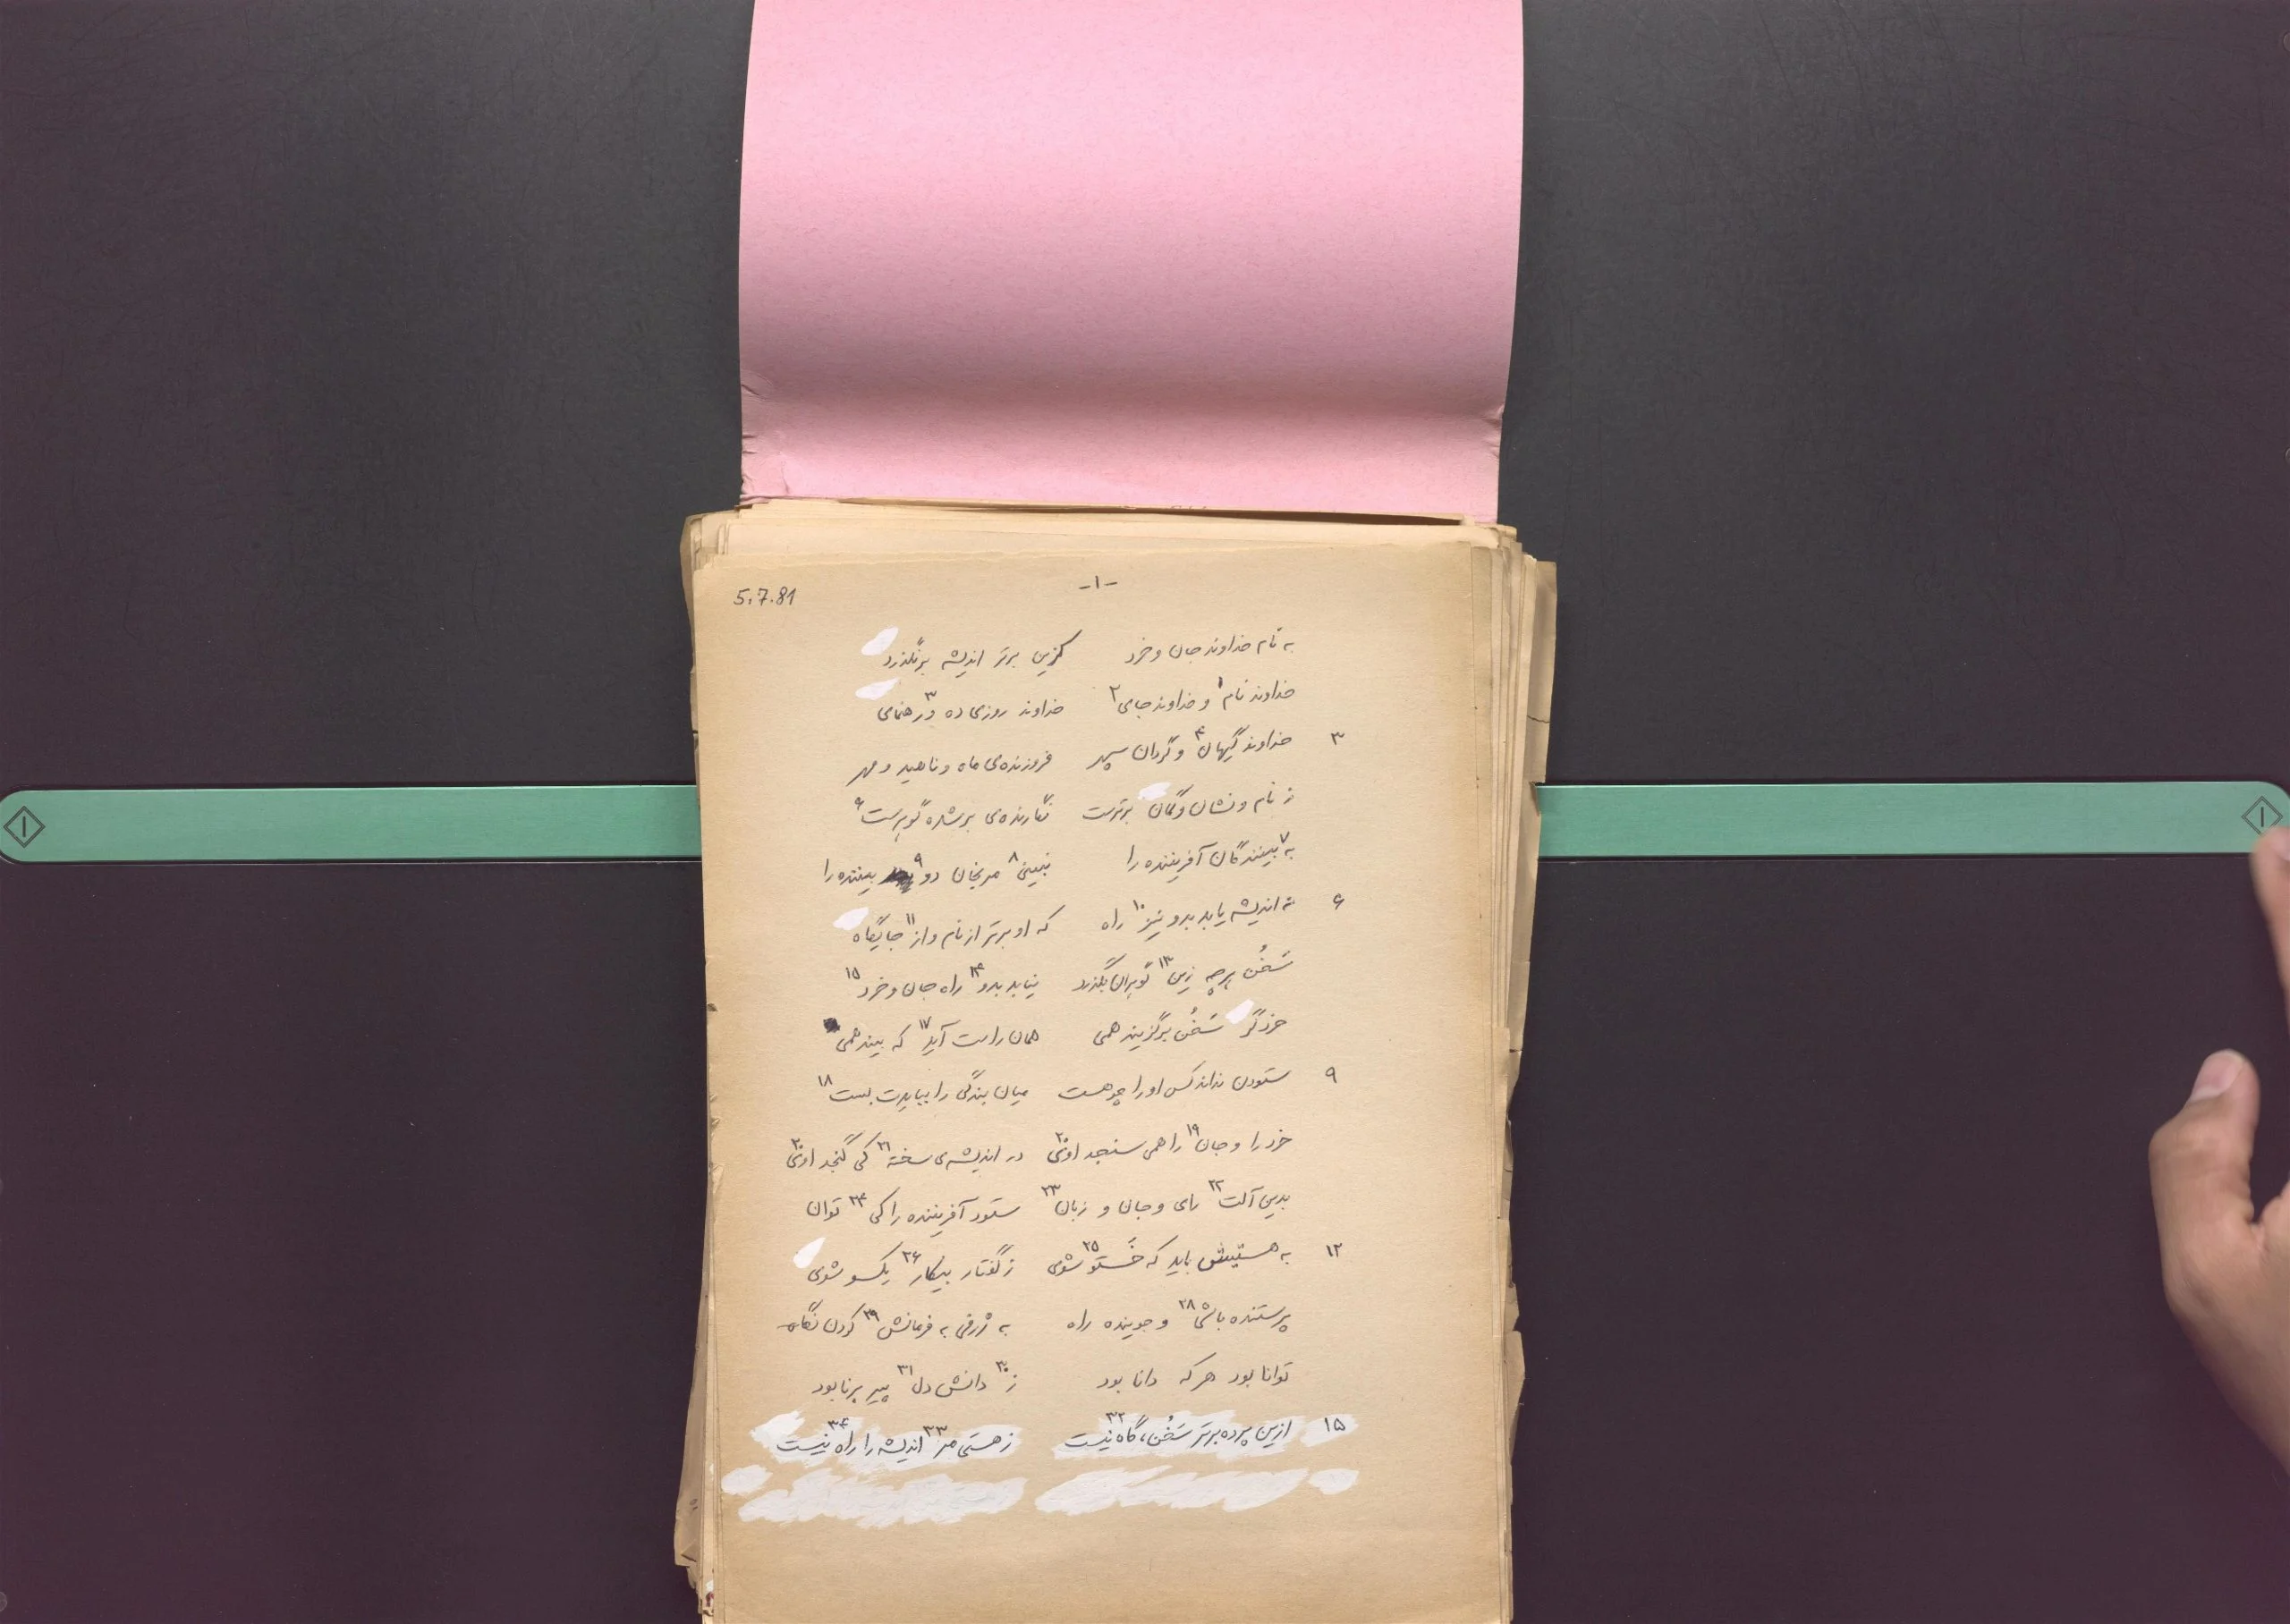 5.7.81
-۱-
به نام خداوند جان و خرد    کزین برتر اندیشه برنگذرد
خداوند نام۱ و خداوند جای۲    خداوند روزی ده۳ و رهنمای
۳    خداوند گیهان۴ و گردان سپهر    فروزنده‌ی ماه و ناهید و مهر
ز نام و نشان و گمان برترست    نگارنده‌ی برشده گوهرست۶
به۷ بینندگان آفریننده را    نبینی۸ مرنجان دو۹ بیننده را
۶    نه اندیشه یابد بدو نیز۱۰ راه    که او برتر از نام و از۱۱ جایگاه
سَخُن هرچه زین۱۳ گوهران بگذرد    نیابد بدو۱۴ راه جان و خرد۱۵
خرد گر سَخُن برگزیند همی    همان راست آید۱۷ که بیند همی
۹    ستودن نداند کس او را چو هست    میان بندگی را ببایدت بست۱۸
خرد را و جان۱۹ را همی سنجد اوی۲۰    در اندیشه‌ی سخته۲۱ کی گنجد اوی۲۰
بدین آلت۲۲ رای و جان و زبان۲۳    ستود آفریننده را کی۲۴ توان
۱۲    به هستیش باید که خَستو۲۵ شوی    ز گفتار بیکار۲۶ یکسو شوی
پرستنده باشی۲۸ و جوینده راه    به ژرفی به فرمانش۲۹ کردن نگاه
توانا بود هر که دانا بود    ز۳۰ دانش دل۳۱ پیر برنا بود
۱۵    ازین پرده برتر سَخُن،۳۲ گاه نیست    ز هستی مر۳۳ اندیشه را راه۳۴ نیست